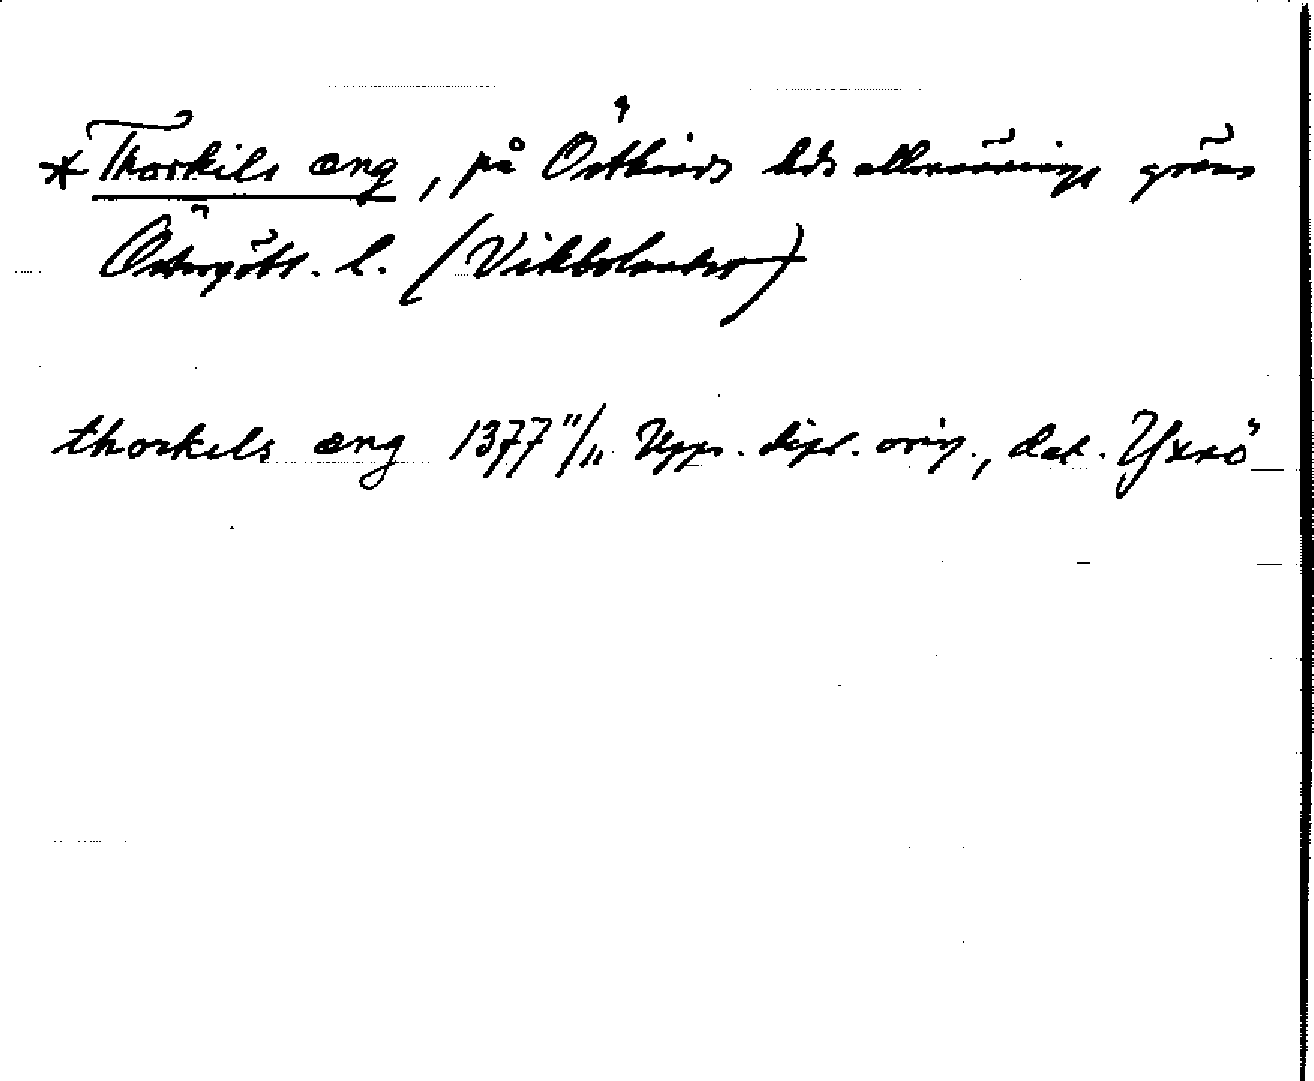 *Thorkils æng, på Östkinds hds allmännings gräns
Östergötl. l. (Vikbolandet)
thorkels æng 1377 11/11 Upps. dipl. orig., dat. Yxnö